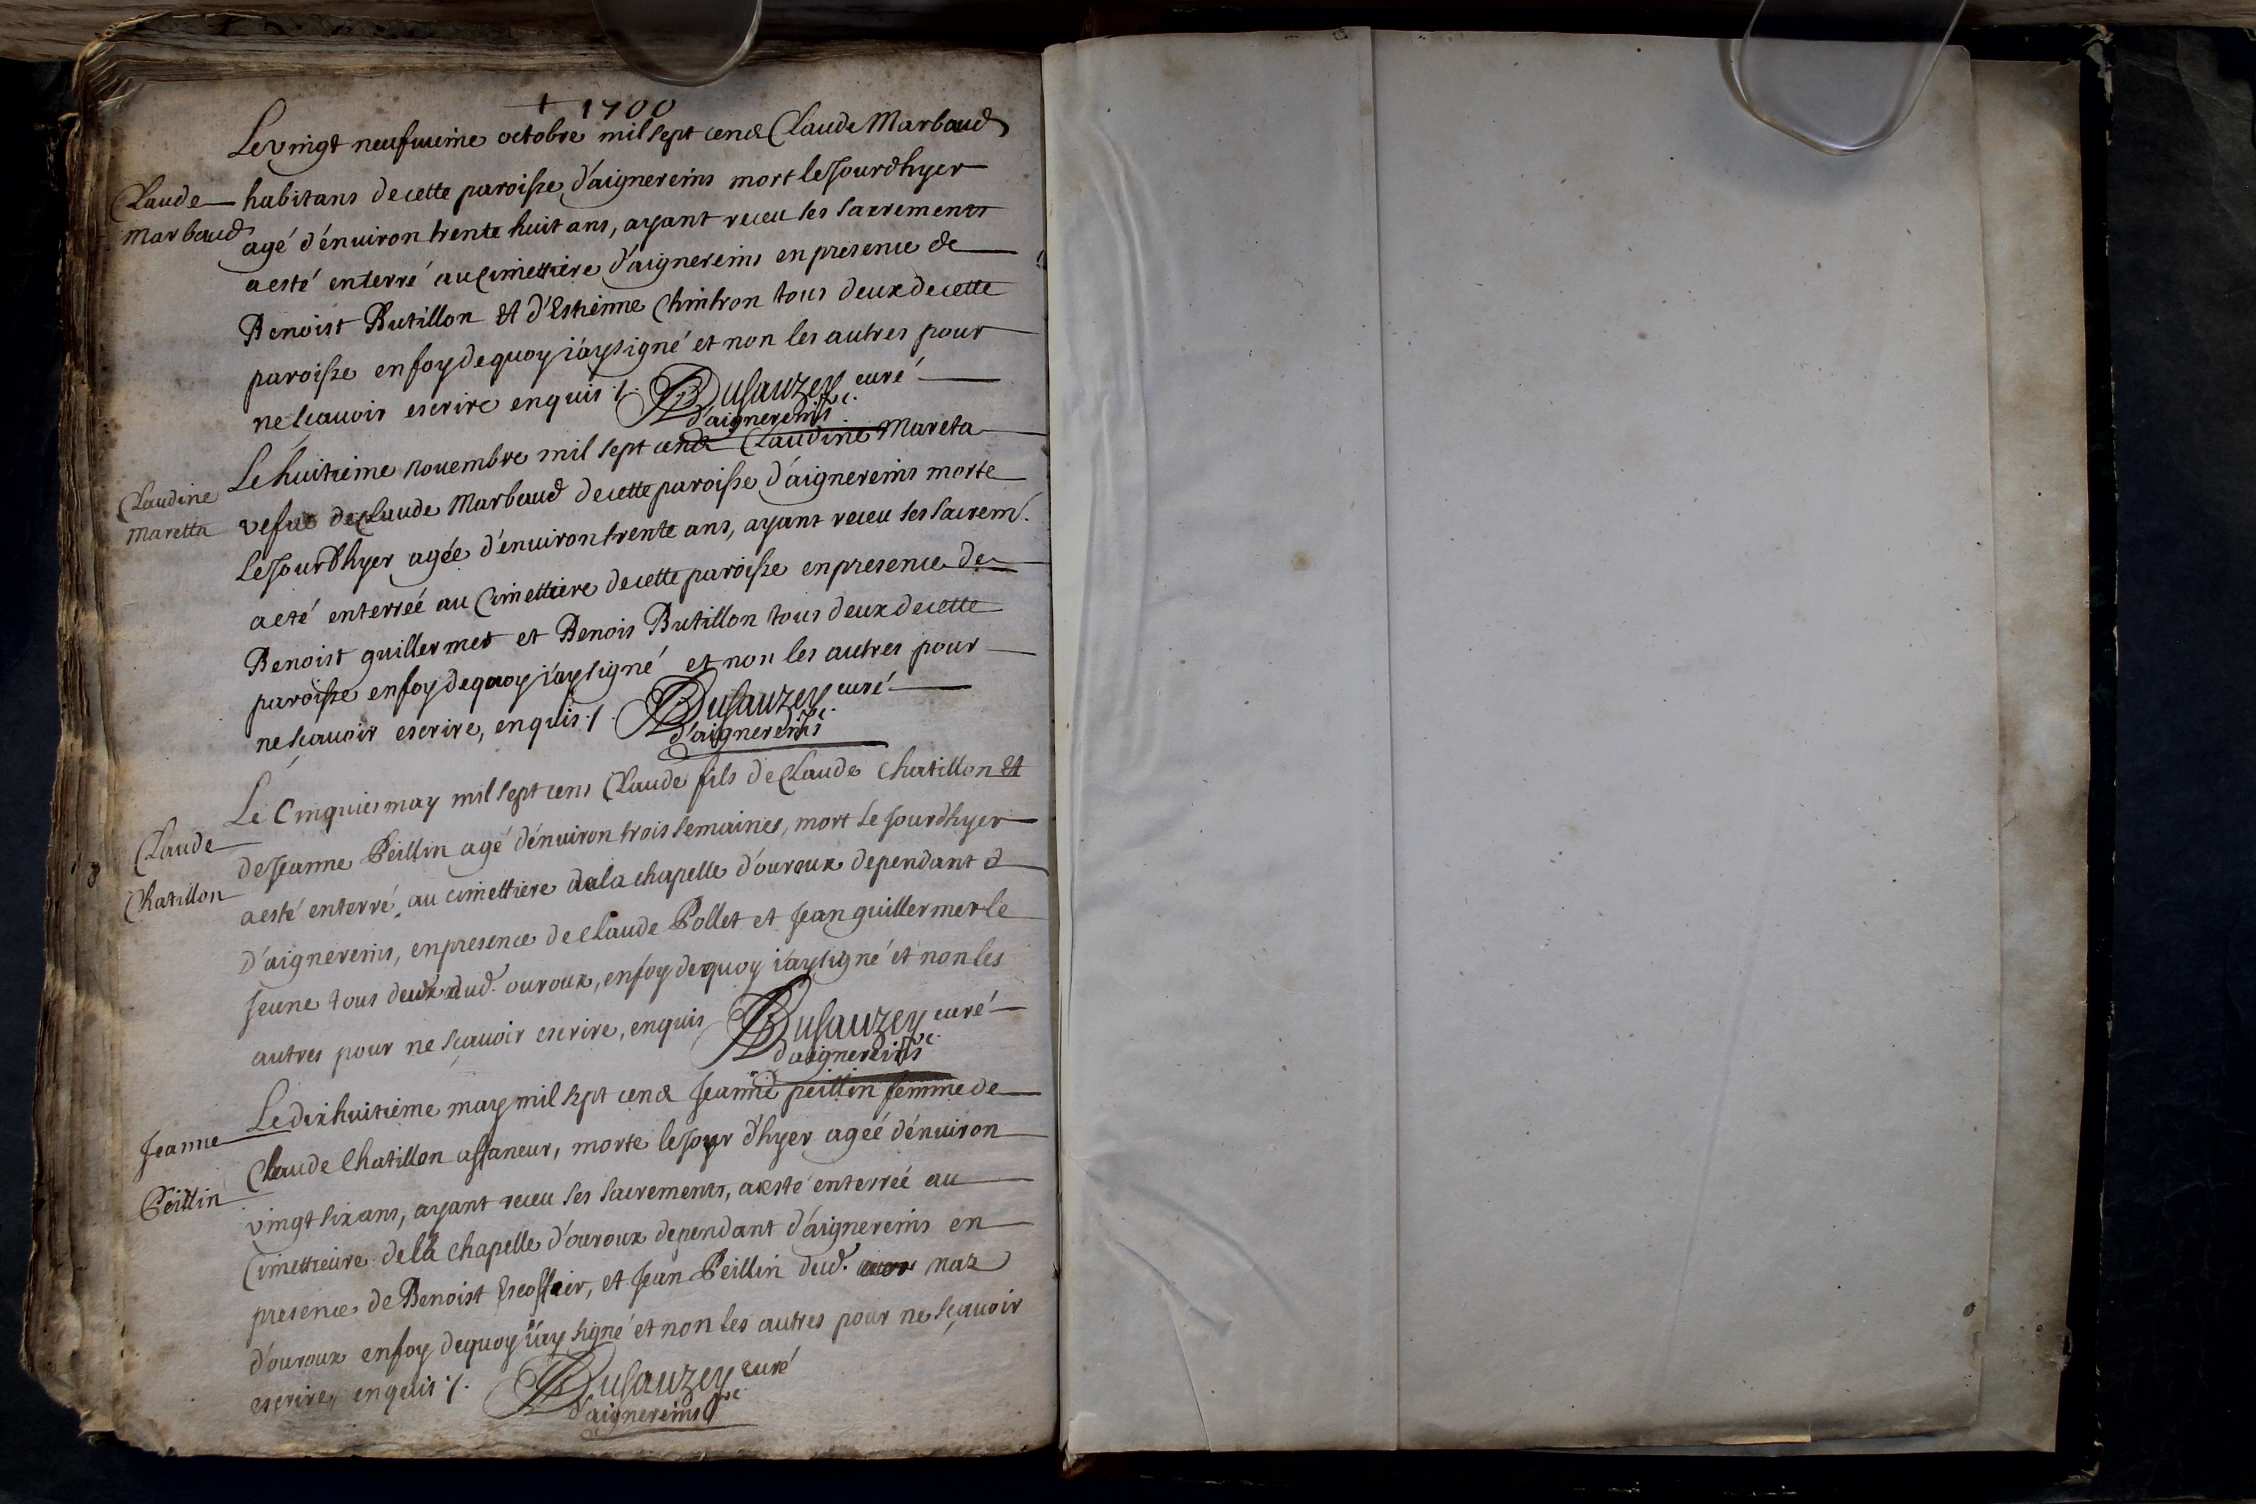 + 1700
Le vingt neufuieme octobre mil sept cend Claude Marbaud
Claude habitans de cette paroisse d'aignereins mort le Jourdhyer
Marbaud agé d'énuiron trente huit ans, ayant receu les sacrements
a esté enterré au Cimettiere d'aignereins en presence de
Benoist Butillon Et d'Estienne Chintron tous deux de cette
paroisse en foy de quoy j'ay signé et non les autres pour
ne sçauoir escrire enquis ·/· Dusauzey curé
d'aignereins
Le huitieme nouembre mil sept cend Claudine Mareta
Claudine vefue de Claude Marbaud de cette paroisse d'aignereins morte
Maretta le Jourdhyer agée d'enuiron trente ans, ayant receu les sacrem.
a eté enterréé au Cimettiere de cette paroisse en presence de
Benoist guillermet et Benois Butillon tous deux de cette
paroisse en foy de quoy j'ay signé et non les autres pour
ne sçauoir escrire, enquis ·/· Dusauzey curé
d'aignereins
Le Cinquies may mil sept cens Claude fils de Claude Chatillon Et
Claude de Jeanne Peillin agé d'énuiron trois semaines, mort le Jourdhyer
Chatillon a esté enterré, au cimettiere de la chapelle d'ouroux dependant d
d'aignereins, en presence de Claude Pollet et Jean guillermet le
Jeune tous deux dud. ouroux, en foy de quoy j'ay signé et non les
autres pour ne sçauoir escrire, enquis Dusauzey curé
d'aignereins
Le dixhuitieme may mil sept cend Jeanne peillin femme de
Jeanne Claude Chatillon affaneur, morte le Jour d'hyer agéé d'énuiron
Peillin vingt six ans, ayant receu ses sacrements, a esté enterréé au
Cimettieure de la chapelle d'ouroux dependant d'aignereins en
presence de Benoist Escoffier, et Jean Peillin dud. naz
d'ouroux en foy de quoy j'ay signé et non les autres pour ne sçauoir
escrire, enquis ·/· Dusauzey curé
d'aignereins